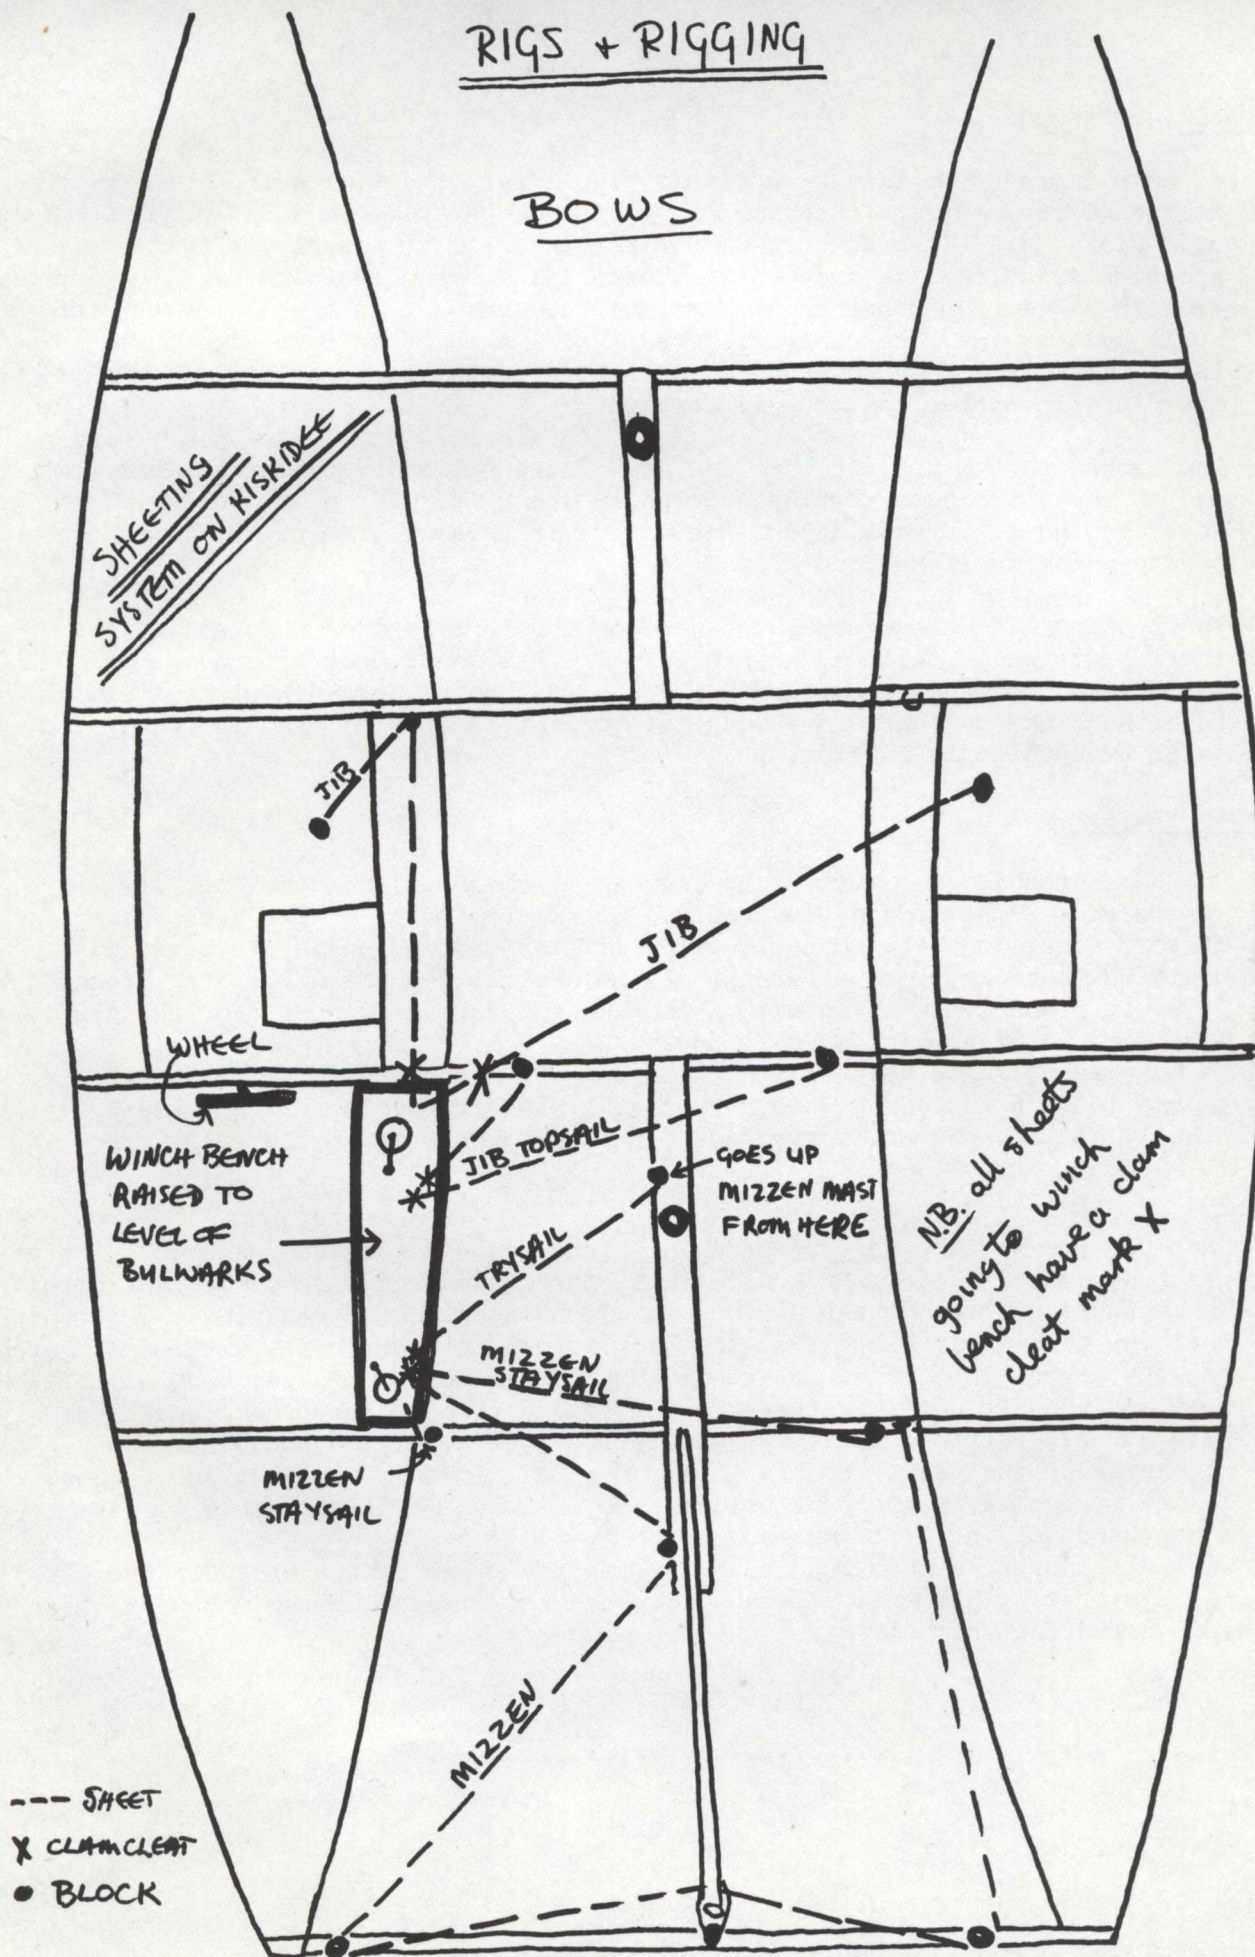 RIGS + RIGGING
BOWS
SHEETING
SYSTEM ON KISKIDEE
JIB
JIB
WHEEL
WINCH BENCH
RAISED TO
LEVEL OF
BULWARKS
JIB TOPSAIL
GOES UP
MIZZEN MAST
FROM HERE
TRYSAIL
N.B. all sheets
going to winch
bench have a clam
cleat mark X
MIZZEN
STAYSAIL
MIZZEN
STAYSAIL
MIZZEN
--- SHEET
X CLAMCLEAT
● BLOCK